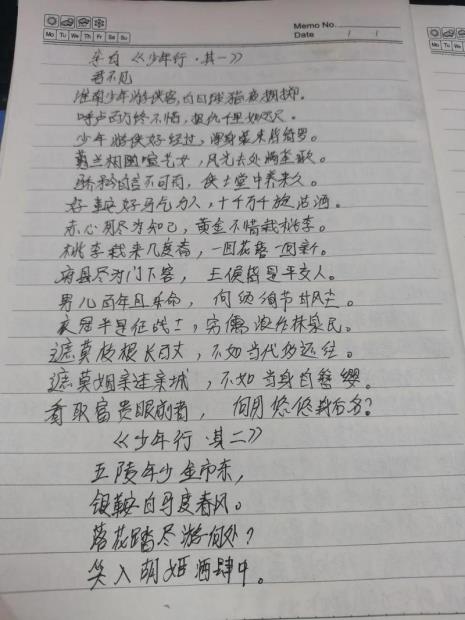 Memo No.
Mo Tu We Th Fr Sa Su
Date / /
李白《少年行·其一》
君不见
淮南少年游侠客,白日球猎夜拥掷。
呼卢百万终不惜,报仇千里如咫尺。
少年游侠好经过,浑身装束皆绮罗。
蕙兰相随喧女,风光去处满笙歌。
骄矜自言不可有,侠士堂中养来久。
好鞍好马乞人,十千千旋沽酒。
赤心用尽为知己,黄金不惜栽桃李。
桃李栽来几度春,一回花落一回新。
府县尽为门下客,王侯皆是平交人。
男儿百年且乐命,何须徇节甘风尘。
衣冠半是征战士,穷儒浪作林泉民。
遮莫枝根长百丈,不如当代多还往。
遮莫姻亲连帝城,不如当身自簪缨。
看取富贵眼前者,何用悠悠身后名?
《少年行·其二》
五陵年少金市东,
银鞍白马度春风。
落花踏尽游何处?
笑入胡姬酒肆中。